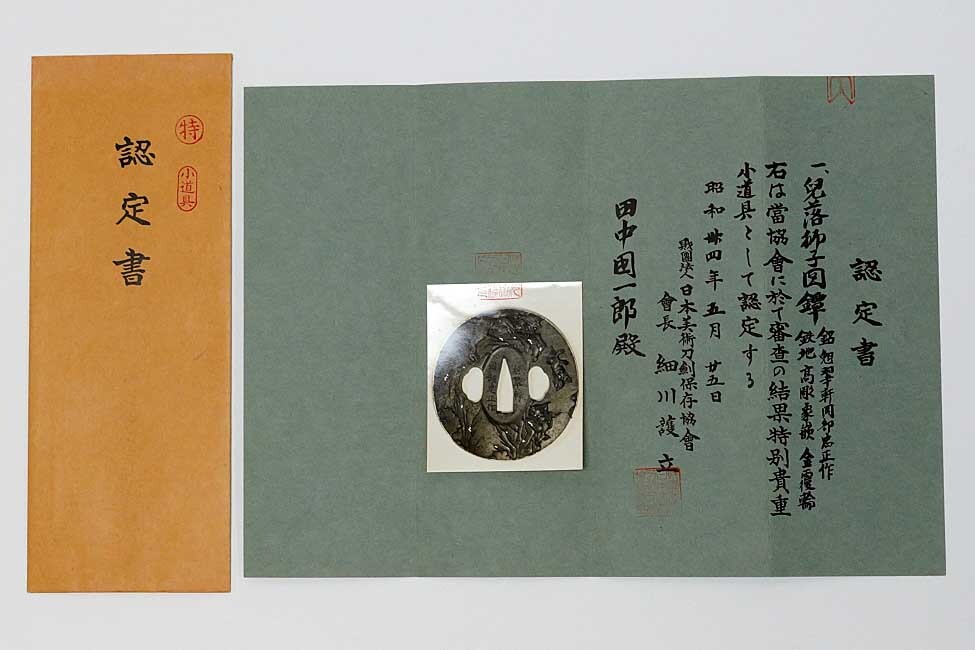 認定書
一、兒落獅子図鐔
鉄地高彫象嵌 金覆輪
右は當協會に於て審査の結果特別貴重
小道具として認定する
昭和卅四年五月廿五日
財團法人日本美術刀剣保存協會
會長 細川護立
田中国一郎殿
特
小道具
認定書